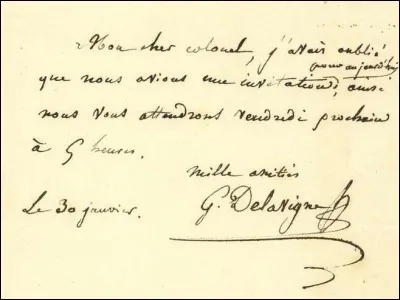 Mon cher colonel, j'avais oublié
pour aujourd'hui
que nous avions une invitation, ainsi
nous vous attendrons vendredi prochain
à 5 heures.
Mille amitiés
G. Delavigne
Le 30 janvier.